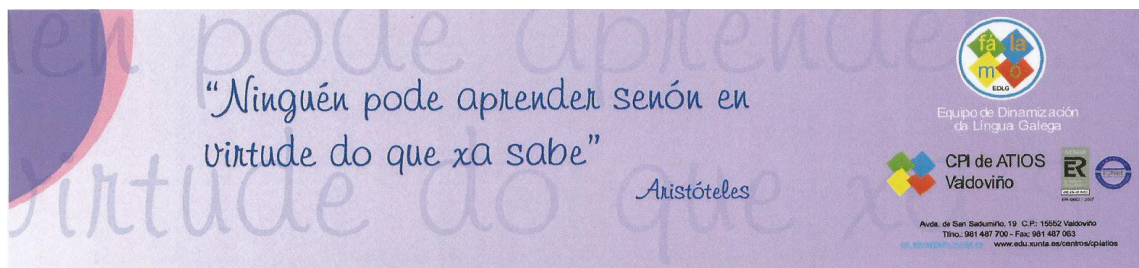 en pode aprende
virtude do que xa
“Ninguén pode aprender senón en
virtude do que xa sabe”
Aristóteles
fá la
mo
EDLG
Equipo de Dinamización
da Lingua Galega
CPI de ATIOS
Valdoviño
ER
Avda. de San Sadurniño, 19 C.P.: 15552 Valdoviño
Tfno.: 981 487 700 - Fax: 981 487 063
www.edu.xunta.es/centros/cpiatios